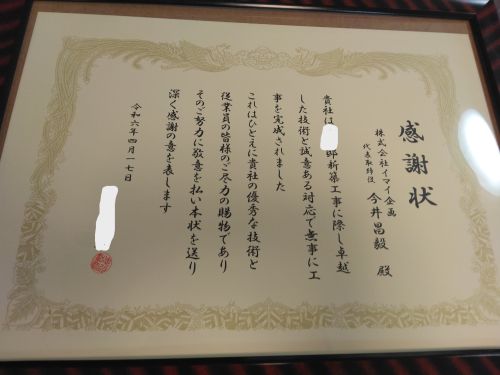 感謝状
株式会社イマイ企画
代表取締役 今井昌毅 殿
貴社は 邸新築工事に際し卓越
した技術と誠意ある対応で無事に工
事を完成されました
これはひとえに貴社の優秀な技術と
従業員の皆様のご尽力の賜物であり
そのご努力に敬意を払い本状を送り
深く感謝の意を表します
令和六年四月一七日